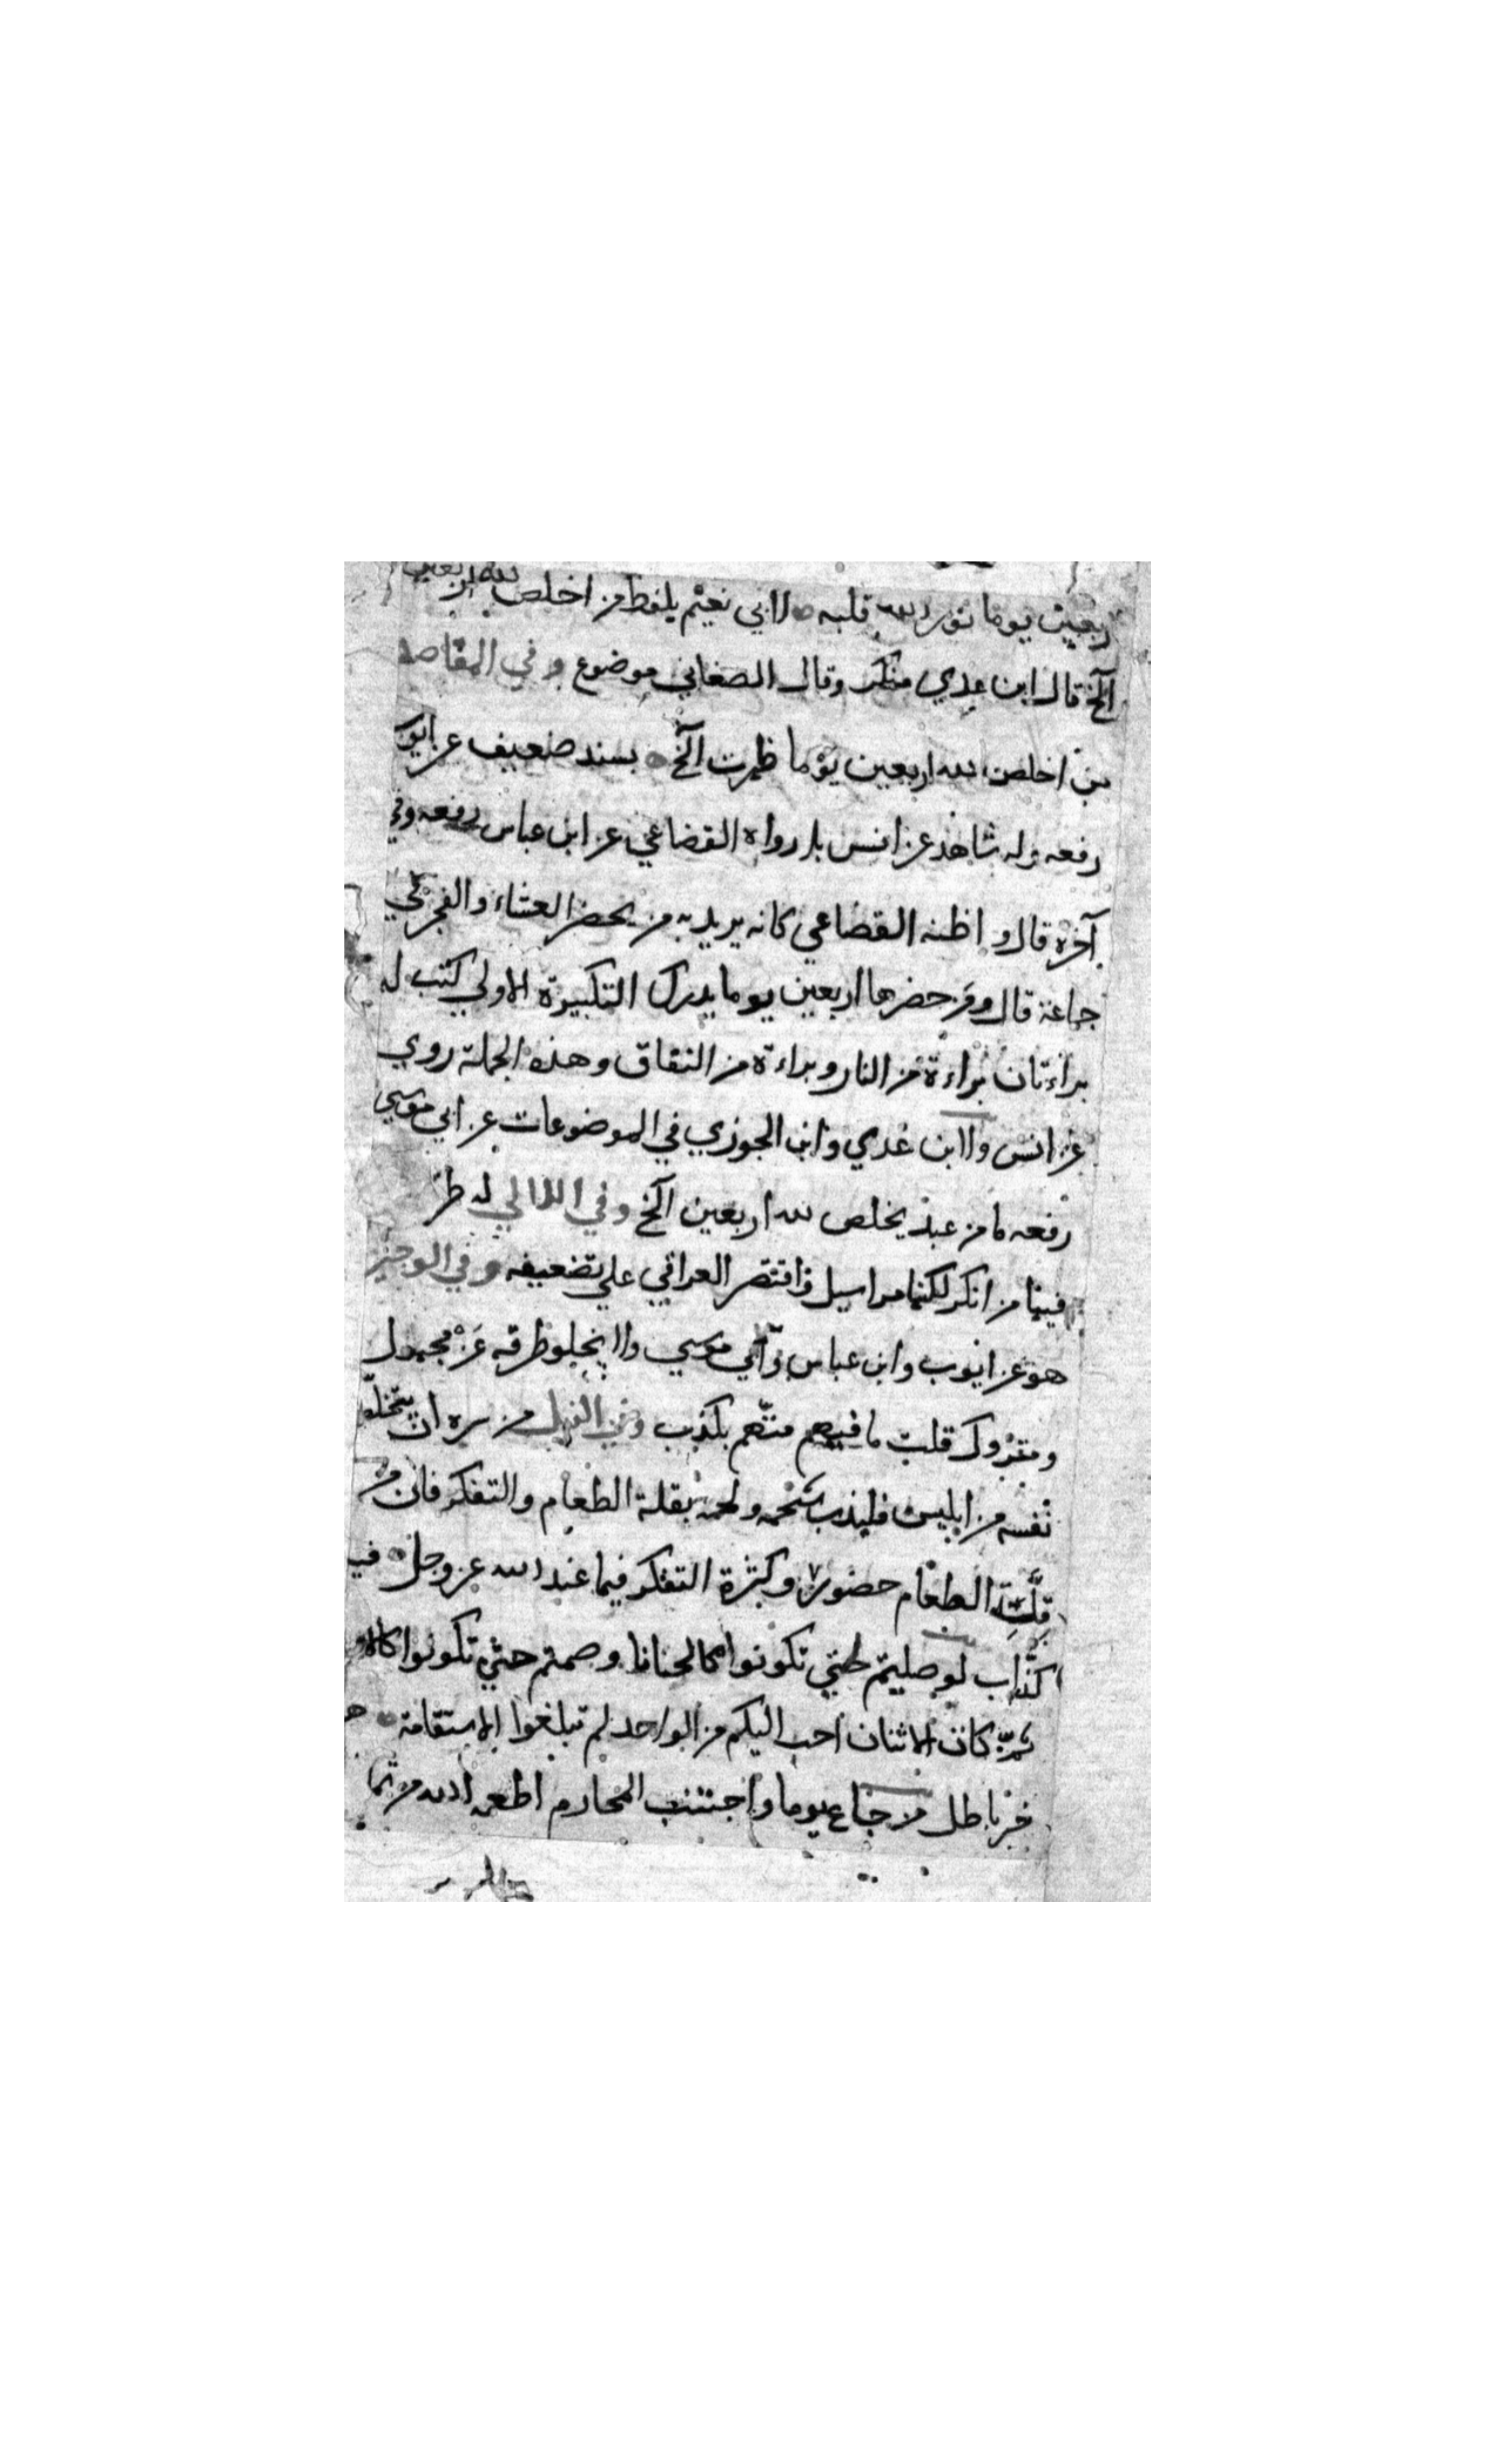 ربعين يوما نور الله قلبه لابي نعيم بلفظ من اخلص لله اربعين
الخ قال ابن عدي منكر وقال الصغاني موضوع وفي المقاصد
من اخلص لله اربعين يوما ظهرت الخ بسند ضعيف عن ايوب
رفعه وله شاهد عن انس بل رواه القضاعي عن ابن عباس رفعه وفي
آخره قال واظنه القضاعي كانه يريد به من يحضر العشاء والفجر في
جماعة قال ومن حضرها اربعين يوما يدرك التكبيرة الاولي كتب له
براءتان براءة من النار وبراءة من النفاق وهذه الجملة روي
عن انس ولابن عدي وابن الجوزي في الموضوعات عن ابي موسي
رفعه ما من عبد يخلص لله اربعين الخ وفي اللالي له طر
فيها من انكر لكنها مراسيل واقتصر العراقي علي تضعيفه وفي الوجيز
هو عن ايوب وابن عباس وابي موسي ولا يخلو طرقه عن مجهول
ومتروك قلت ما فيهم متهم بكذب وفي الذيل من سره ان
نفسه من ابليس فليذب شحمه ولحمه بقلة الطعام والتفكر فان من
قلة الطعام حضور وكثرة التفكر فيما عند الله عز وجل فيه
كذاب لو صليتم حتي تكونوا كالحنايا وصمتم حتي تكونوا كالاو
ثم كان الاثنان احب اليكم من الواحد لم تبلغوا الاستقامة
خبر باطل من جاع يوما واجتنب المحارم اطعمه الله من ثما